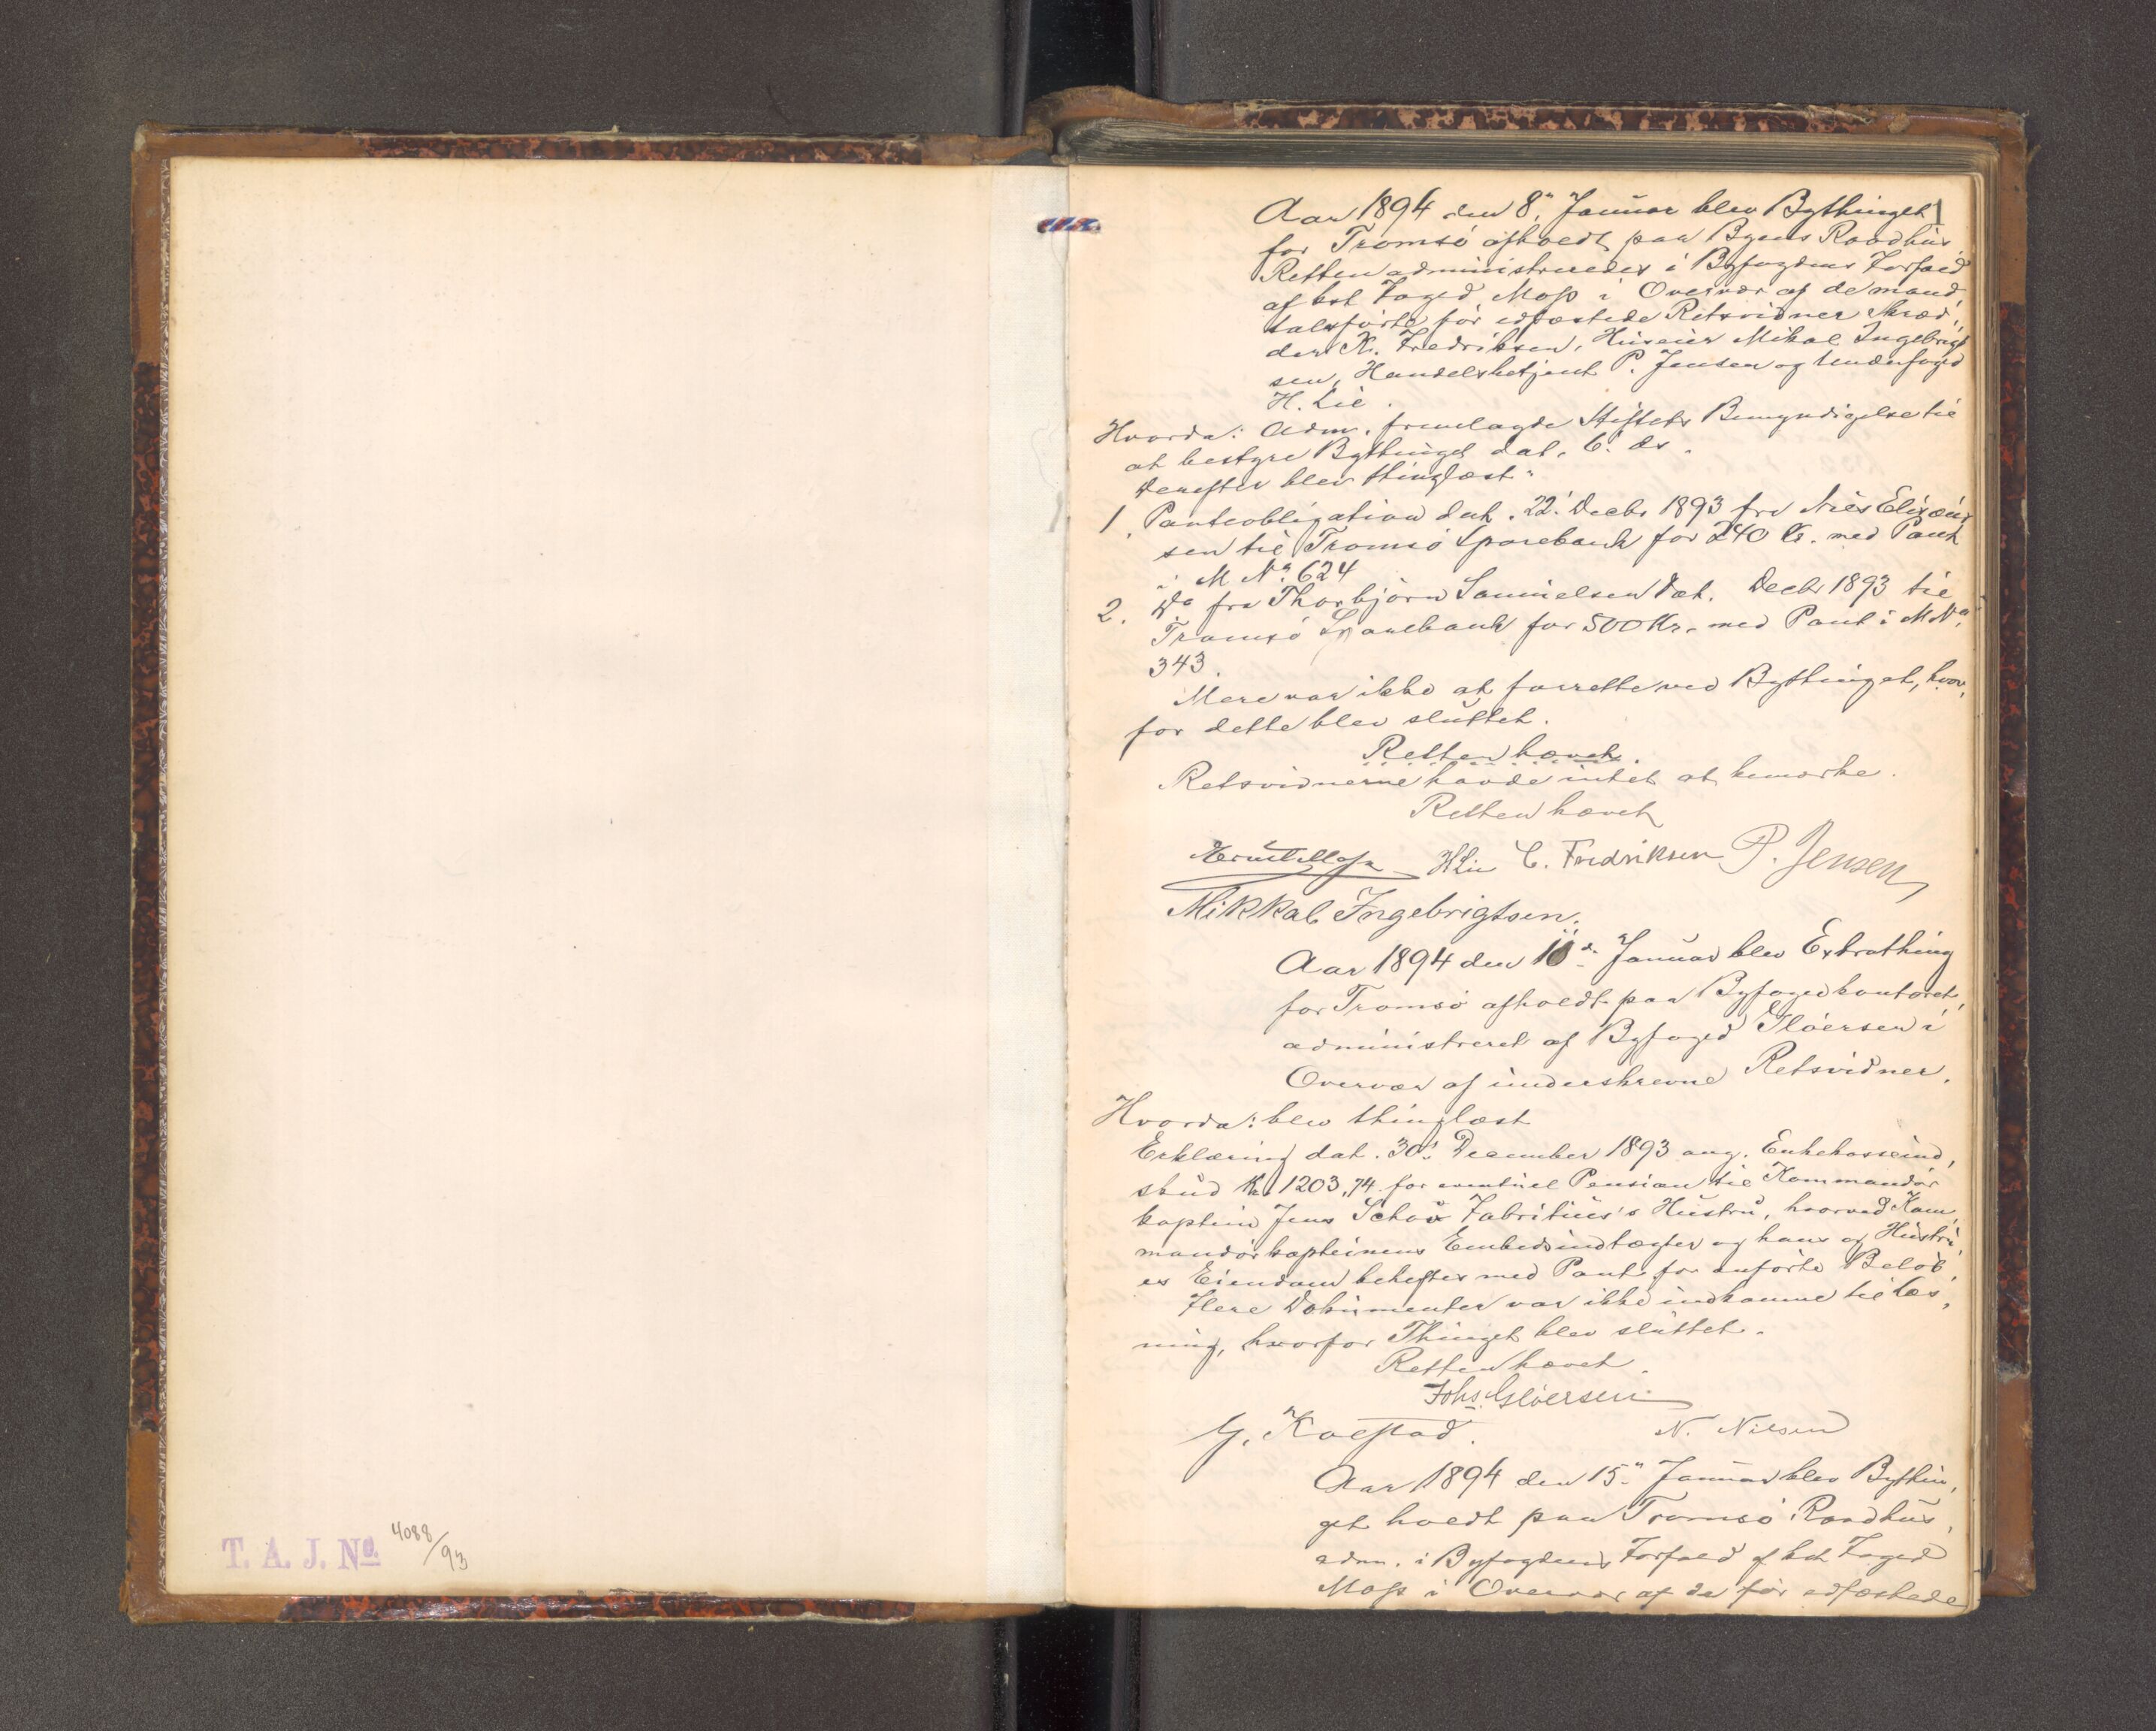 T. A. J. No. 4088/93
1
Aar 1894 den 8. Januar blev Bythinget
for Tromsö afholdt paa Byens Raadhus.
Retten administreredes i Byfogdens Forfald
af kst Foged Moss i Overvær af de mand,
talsførte før edfæstede Retsvidner Skræd,
der K. Fredriksen, Huseier Mikal Ingebrigt
sen, Handelsbetjent P. Jensen og Underfoged
H. Lie.
Hvorda: Adm. fremlagde Stiftets Bemyndigelse til
at bestyre Bythinget dat. 6. ds.
Derefter blev thinglæst:
1. Panteobligation dat. 22. Decbr 1893 fra Nils Eliæus
sen til Tromsö Sparebank for 240 Kr. med Pant
i M No. 624
2. Do fra Thorbjørn Samuelsen dat. Decbr 1893 til
Tromsö Sparebank for 500 Kr. med Pant i M No.
343.
Mere var ikke at forrette ved Bythinget, hvor,
for dette blev sluttet.
Retten hævet.
Retsvidnerne havde intet at bemærke.
Retten hævet
Moss HLie C. Fredriksen P. Jensen
Mikkal Ingebrigtsen.
Aar 1894 den Januar blev Extrathing
for Tromsö afholdt paa Byfogedkontoret,
administreret af Byfoged Gløersen i
Overvær af underskrevne Retsvidner.
Hvorda: blev thinglæst
Erklæring dat. 30. December 1893 ang. Enkekasseind,
skud Kr 1203,74 for eventuel Pension til Kommandör
kaptein Jens Schou Fabritius's Hustru, hvorved Kom,
mandörkapteinens Embedsindtægter og hans og Hustru,
es Eiendom beheftes med Pant for anførte Beløb.
Flere Dokumenter var ikke indkomne til Læs,
ning, hvorfor Thinget blev sluttet.
Retten hævet.
Johs. Gløersen
G. Kolstad. N. Nilsen
Aar 1894 den 15. Januar blev Bythin,
get holdt paa Tromsö Raadhus,
adm. i Byfogdens Forfald af kst Foged
Moss i Overvær af de før edfæstede